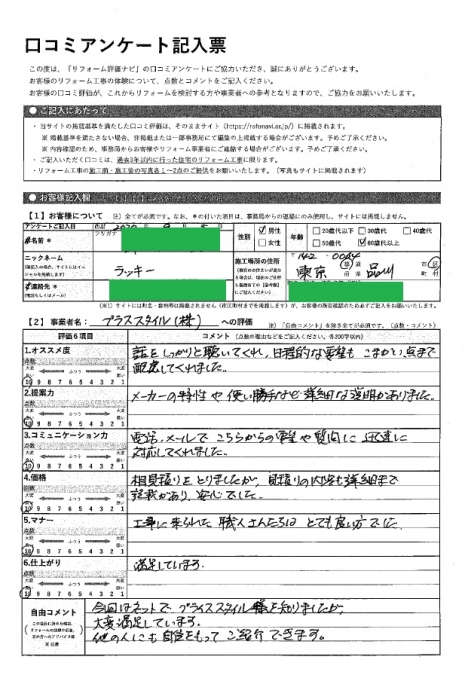 口コミアンケート記入票
この度は、「リフォーム評価ナビ」の口コミアンケートにご協力いただき、誠にありがとうございます。
お客様のリフォーム工事の体験について、点数とコメントをご記入ください。
お客様の口コミ評価が、これからリフォームを検討する方や事業者への参考となりますので、ご協力をお願いいたします。
● ご記入にあたって
・当サイトの掲載基準を満たした口コミ評価は、そのままサイト（https://refonavi.or.jp/）に掲載されます。
※ 掲載基準を満たさない場合、非掲載または一部事務局にて編集の上掲載する場合がございます。予めご了承ください。
※ 内容確認のため、事務局からお客様やリフォーム事業者にご連絡する場合がございます。予めご了承ください。
・ご記入いただく口コミは、過去3年以内に行った住宅のリフォーム工事に限ります。
・リフォーム工事の施工前・施工後の写真各1～2点のご提供をお願いいたします。（写真もサイトに掲載されます）
● お客様記入欄
【1】お客様について 注）全てが必須です。なお、＊の付いた項目は、事務局からの連絡にのみ使用し、サイトには掲載しません。
アンケートご記入日
フリガナ
お名前＊
性別
男性
女性
年齢
20歳代以下
30歳代
40歳代
50歳代
60歳代以上
ニックネーム
ラッキー
施工場所の住所
〒142-0064
東京
都
品川
区
ご連絡先＊
【2】事業者名: プラススタイル(株) への評価
注）「自由コメント」を除き全てが必須です。（点数・コメント）
評価6項目
コメント（点数の理由などをご記入ください。各200字以内）
1.オススメ度
点数
10 9 8 7 6 5 4 3 2 1
話をしっかりと聴いてくれ、日程的な要望もこまかい点まで
配慮してくれました。
2.提案力
点数
10 9 8 7 6 5 4 3 2 1
メーカーの特性や使い勝手など詳細な説明がありました。
3.コミュニケーション力
点数
10 9 8 7 6 5 4 3 2 1
電話、メールでこちらからの要望や質問に迅速に
対応してくれました。
4.価格
点数
10 9 8 7 6 5 4 3 2 1
相見積りをとりましたが、見積りの内容も詳細まで
記載があり、安心でした。
5.マナー
点数
10 9 8 7 6 5 4 3 2 1
工事に来られた職人さんたちはとても良い方でした
6.仕上がり
点数
10 9 8 7 6 5 4 3 2 1
満足しています。
自由コメント
※ 任意
今回はネットでプラススタイル様を知りましたが、
大変満足しています。
他の人にも自信をもってご紹介できます。